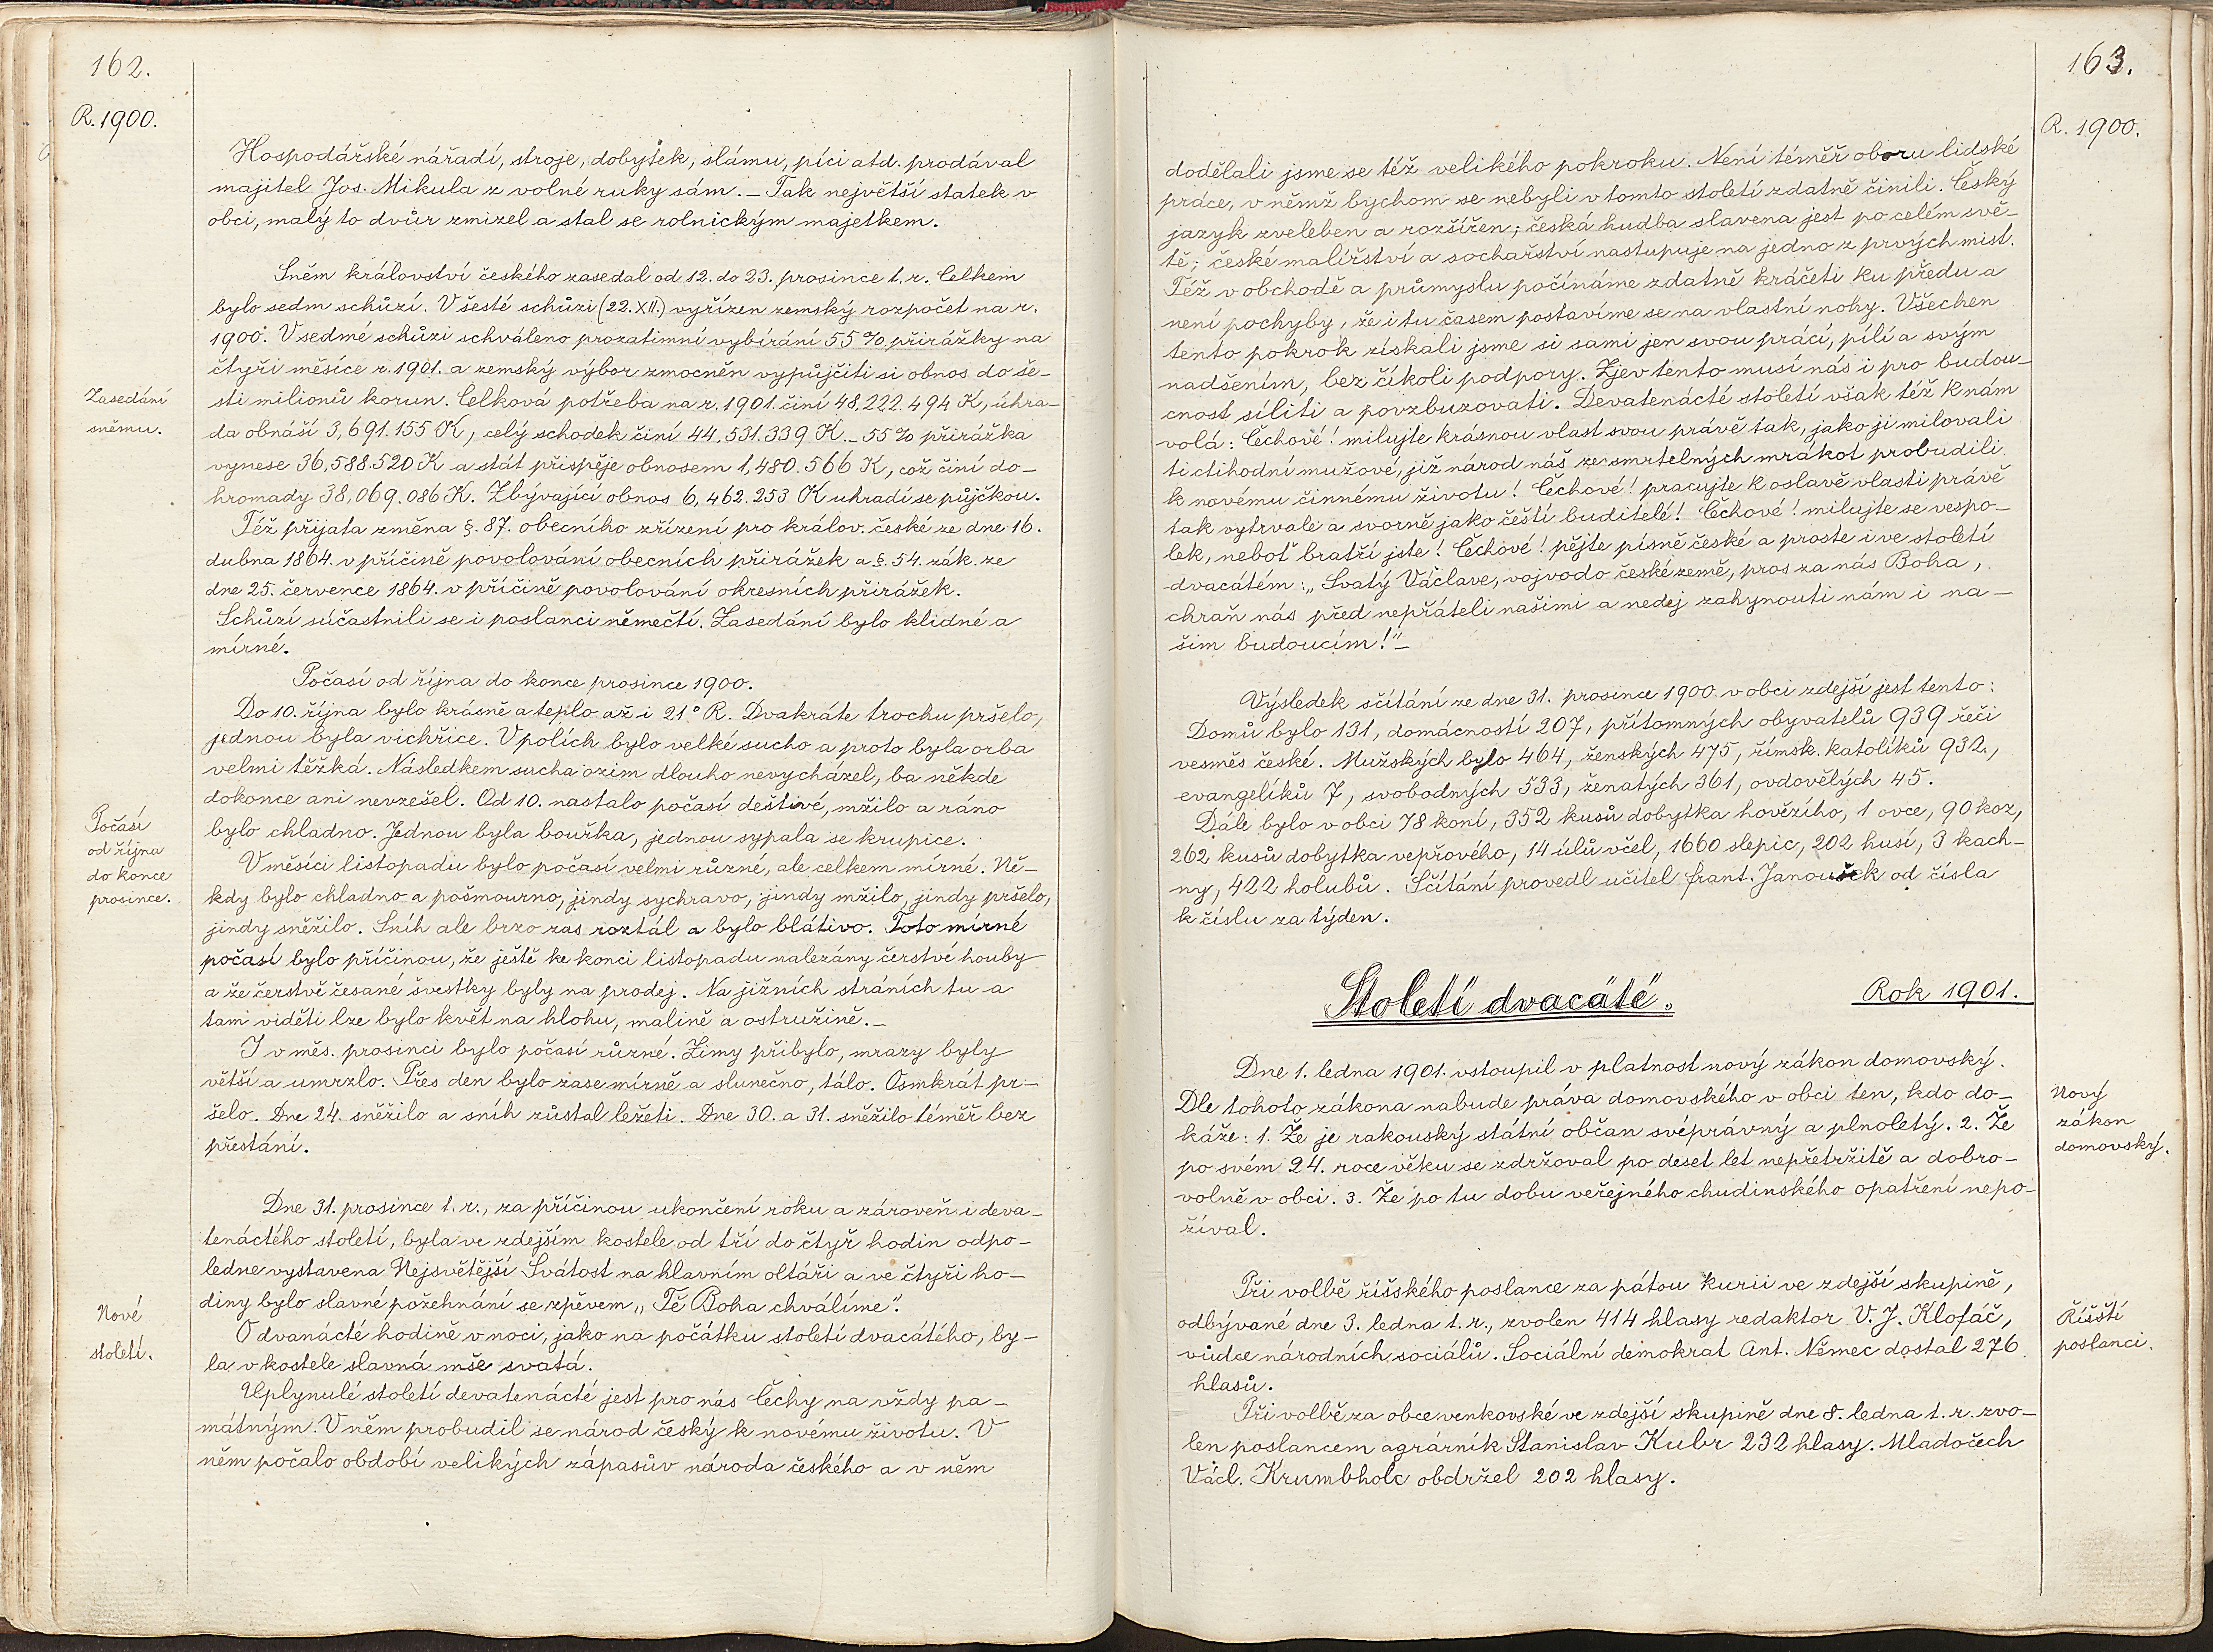 162.
R. 1900.
Hospodářské nářadí, stroje, dobytek, slámu, píci atd. prodával
majitel Jos. Mikula z volné ruky sám. – Tak největší statek v
obci, malý to dvůr zmizel a stal se rolnickým majetkem.
Sněm království českého zasedal od 12. do 23. prosince t. r. Celkem
bylo sedm schůzí. V šesté schůzi (22. XII.) vyřízen zemský rozpočet na r.
1900. V sedmé schůzi schváleno prozatimní vybírání 55 % přirážky na
čtyři měsíce r. 1901. a zemský výbor zmocněn vypůjčiti si obnos do še-
Zasedání
sněmu.
sti milionů korun. Celková potřeba na r. 1901. činí 48,222.494 K, úhra-
da obnáší 3,691.155 K, celý schodek činí 44,531.339 K. – 55 % přirážka
vynese 36,588.520 K a stát přispěje obnosem 1,480.566 K, což činí do-
hromady 38,069.086 K. Zbývající obnos 6,462.253 K uhradí se půjčkou.
Též přijata změna §. 87. obecního zřízení pro králov. české ze dne 16.
dubna 1864. v příčině povolování obecních přirážek a §. 54. zák. ze
dne 25. července 1864. v příčině povolování okresních přirážek.
Schůzí súčastnili se i poslanci němečtí. Zasedání bylo klidné a
mírné.
Počasí od října do konce prosince 1900.
Do 10. října bylo krásně a teplo až i 21° R. Dvakráte trochu pršelo,
jednou byla vichřice. V polích bylo velké sucho a proto byla orba
velmi těžká. Následkem sucha ozim dlouho nevycházel, ba někde
dokonce ani nevzešel. Od 10. nastalo počasí deštivé, mžilo a ráno
bylo chladno. Jednou byla bouřka, jednou sypala se krupice.
Počasí
od října
do konce
prosince.
V měsíci listopadu bylo počasí velmi různé, ale celkem mírné. Ně-
kdy bylo chladno a pošmourno, jindy sychravo, jindy mžilo, jindy pršelo,
jindy sněžilo. Sníh ale brzo zas roztál a bylo blátivo. Toto mírné
počasí bylo příčinou, že ještě ke konci listopadu nalezány čerstvé houby
a že čerstvě česané švestky byly na prodej. Na jižních stráních tu a
tam viděti lze bylo květ na hlohu, malině a ostružině. –
I v měs. prosinci bylo počasí různé. Zimy přibylo, mrazy byly
větší a umrzlo. Přes den bylo zase mírně a slunečno, tálo. Osmkrát pr-
šelo. Dne 24. sněžilo a sníh zůstal ležeti. Dne 30. a 31. sněžilo téměř bez
přestání.
Dne 31. prosince t. r., za příčinou ukončení roku a zároveň i deva-
tenáctého století, byla ve zdejším kostele od tří do čtyř hodin odpo-
ledne vystavena Nejsvětější Svátost na hlavním oltáři a ve čtyři ho-
diny bylo slavné požehnání se zpěvem „Tě Boha chválíme“.
Nové
století.
O dvanácté hodině v noci, jako na počátku století dvacátého, by-
la v kostele slavná mše svatá.
Uplynulé století devatenácté jest pro nás Čechy na vždy pa-
mátným. V něm probudil se národ český k novému životu. V
něm počalo období velikých zápasův národa českého a v něm
163.
R. 1900.
dodělali jsme se též velikého pokroku. Není téměř oboru lidské
práce, v němž bychom se nebyli v tomto století zdatně činili. Český
jazyk zveleben a rozšířen; česká hudba slavena jest po celém svě-
tě; české malířství a sochařství nastupuje na jedno z prvých míst.
Též v obchodě a průmyslu počínáme zdatně kráčeti ku předu a
není pochyby, že i tu časem postavíme se na vlastní nohy. Všechen
tento pokrok získali jsme si sami jen svou prácí, pílí a svým
nadšením, bez číkoli podpory. Zjev tento musí nás i pro budou-
cnost síliti a povzbuzovati. Devatenácté století však též k nám
volá: Čechové! milujte krásnou vlast svou právě tak, jako ji milovali
ti ctihodní mužové, již národ náš ze smrtelných mrákot probudili
k novému činnému životu! Čechové! pracujte k oslavě vlasti právě
tak vytrvale a svorně jako čeští buditelé! Čechové! milujte se vespo-
lek, neboť bratří jste! Čechové! pějte písně české a proste i ve století
dvacátém: „Svatý Václave, vojvodo české země, pros za nás Boha,
chraň nás před nepřáteli našimi a nedej zahynouti nám i na-
šim budoucím!“ –
Výsledek sčítání ze dne 31. prosince 1900. v obci zdejší jest tento:
Domů bylo 131, domácností 207, přítomných obyvatelů 939 řeči
vesměs české. Mužských bylo 464, ženských 475, římsk. katolíků 932,
evangelíků 7, svobodných 533, ženatých 361, ovdovělých 45.
Dále bylo v obci 78 koní, 352 kusů dobytka hovězího, 1 ovce, 90 koz,
262 kusů dobytka vepřového, 14 úlů včel, 1660 slepic, 202 husí, 3 kach-
ny, 422 holubů. Sčítání provedl učitel Frant. Janoušek od čísla
k číslu za týden.
Století dvacáté.
Rok 1901.
Dne 1. ledna 1901. vstoupil v platnost nový zákon domovský.
Dle tohoto zákona nabude práva domovského v obci ten, kdo do-
káže: 1. Že je rakouský státní občan svéprávný a plnoletý. 2. Že
po svém 24. roce věku se zdržoval po deset let nepřetržitě a dobro-
volně v obci. 3. Že po tu dobu veřejného chudinského opatření nepo-
žíval.
Nový
zákon
domovský.
Při volbě říšského poslance za pátou kurii ve zdejší skupině,
odbývané dne 3. ledna t. r., zvolen 414 hlasy redaktor V. J. Klofáč,
vůdce národních sociálů. Sociální demokrat Ant. Němec dostal 276
hlasů.
Říšští
poslanci.
Při volbě za obce venkovské ve zdejší skupině dne 8. ledna t. r. zvo-
len poslancem agrárník Stanislav Kubr 232 hlasy. Mladočech
Václ. Krumbholc obdržel 202 hlasy.